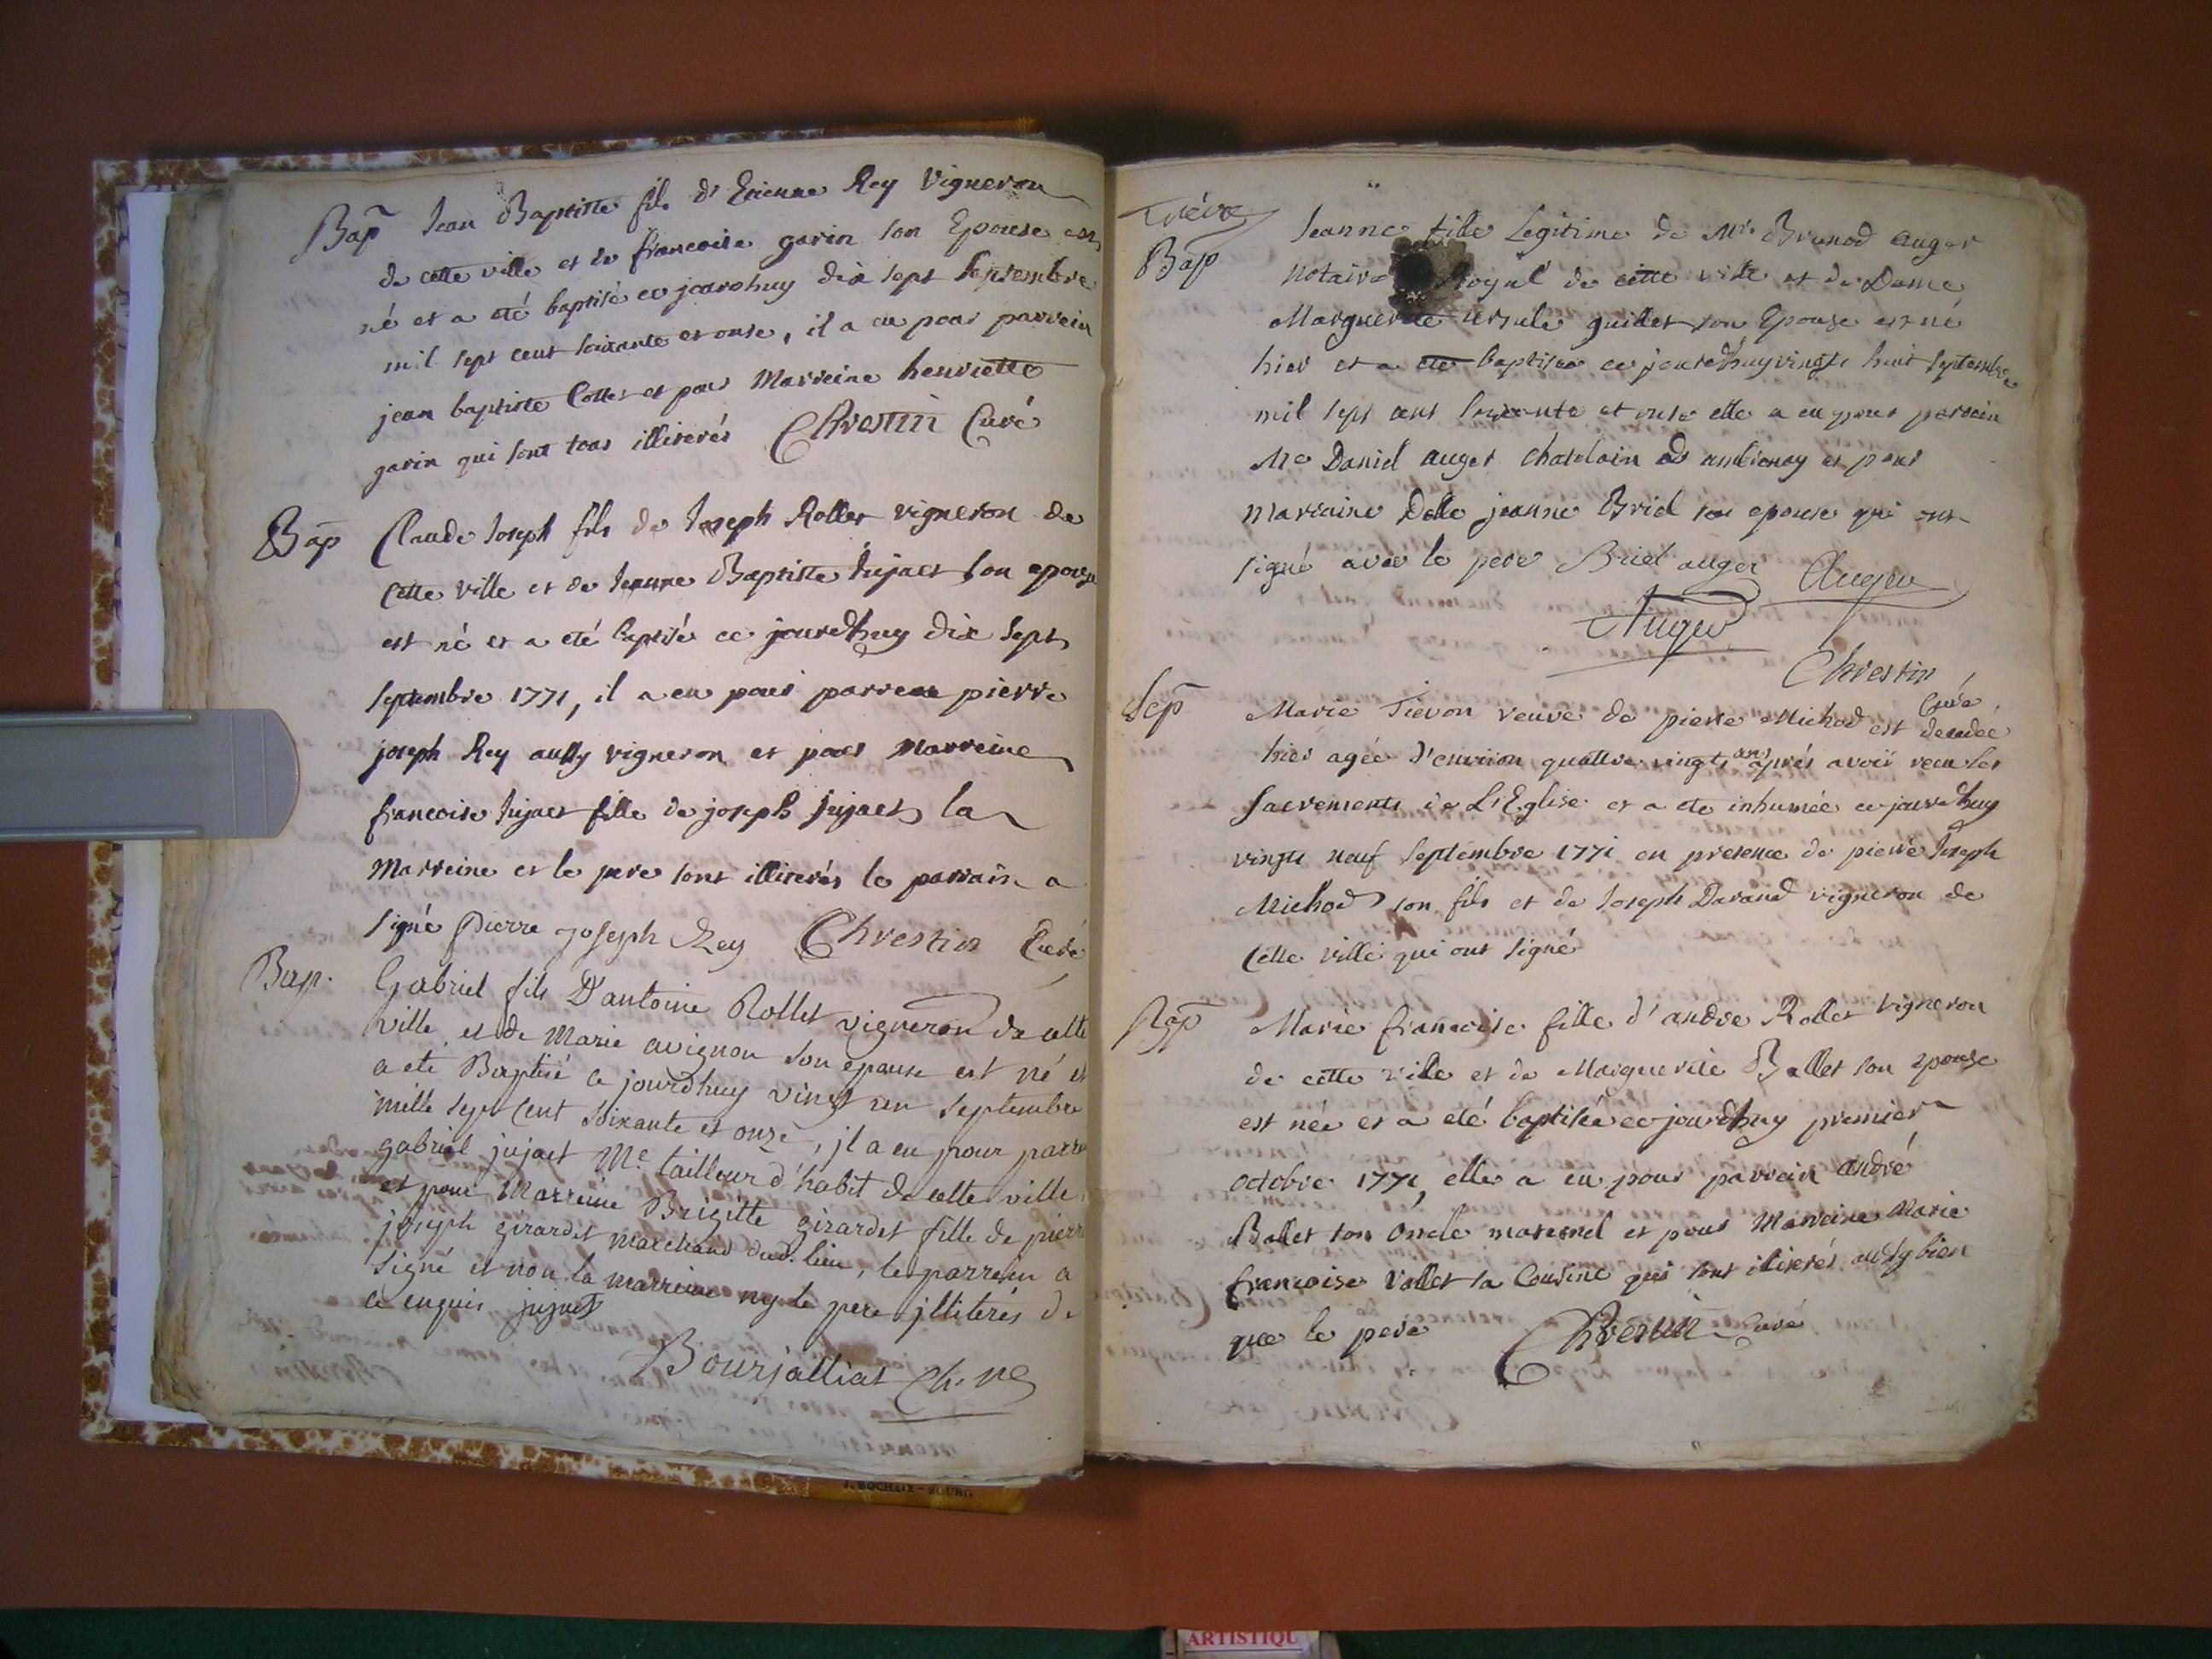 Bap Jean Baptiste fils d'Etienne Rey Vigneron
de cette ville et de francoise garin son Epouse est
né et a eté baptisé ce jourdhuy dix sept Septembre
mil sept cent soixante et onse, il a eu pour parrein
jean baptiste Cottet et pour Marreine henriette
garin qui sont tous illiterés Chrestin Curé
Bap Claude Joseph fils de Joseph Rollet vigneron de
Cette ville et de Jeanne Baptiste Jujaet son epouse
est né et a eté baptisé ce jourdhuy dix sept
septembre 1771, il a eu pour parrein pierre
joseph Rey aussy vigneron et pour Marreine
francoise Jujaet fille de joseph Jujaet la
Marreine et le pere sont illiterés le parrain a
signé Pierre Joseph Rey Chrestin Curé
Bap. Gabriel fils D'antoine Rollet vigneron de cette
ville, et de Marie avignon son epouse est né et
a eté Baptisé ce jourdhuy vingt un septembre
mille sept cent soixante et onze, jl a eu pour parre
gabriel jujaet Me. tailleur d'habit de cette ville,
et pour Marreine Brigitte girardet fille de pierre
joseph girardet marchand dud. lieu, le parrein a
signé et non la marreine ny le pere jlliterés de
ce enquis jujaet
Bourjalliat Ch. ne
J. ROCHAIX - BOURG
Bap Jeanne fille Legitime de Mr. Brunod auger
notaire Royal de cette ville et de Dame
Marguerite ursule guillet son Epouse est né
hier et a eté baptisée ce jourdhuy vingt huit septembre
mil sept cent soixante et onse elle a eu pour parrein
Me Daniel auger Chatelain d'ambronay et pour
marraine Delle jeanne Briel son epouse qui ont
signé avec le pere Briel auger Auger
Auger
Chrestin
Curé
Sep Marie Tievon veuve de pierre Michod est decedée
hier agée d'environ quattre vingts ans aprés avoir recu les
Sacrements de L'Eglise et a eté inhumée ce jourdhuy
vingts neuf septembre 1771 en presence de pierre Joseph
Michod son fils et de Joseph Darand vigneron de
Cette ville qui ont signé
Bap Marie francoise fille d'andre Rollet vigneron
de cette ville et de Marguerite Ballet son epouse
est née et a eté baptisée ce jourdhuy premier
octobre 1771, elle a eu pour parrein andré
Ballet son oncle maternel et pour Marreine Marie
francoise Vallet sa Cousine qui sont illiterés aussy bien
que le pere Chrestin Curé
ARTISTIQU